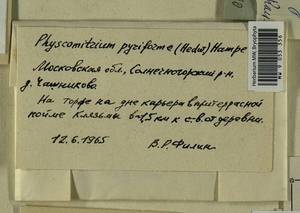 Physcomitrium pyriforme (Hedw.) Hampe
Московская обл., Солнечногорский р-н.
д. Чашниково.
На торфе на дне карьера в притеррасной
пойме Клязьмы ~1,5 км к с.-в. от деревни.
12.6.1965 В.Р. Филин